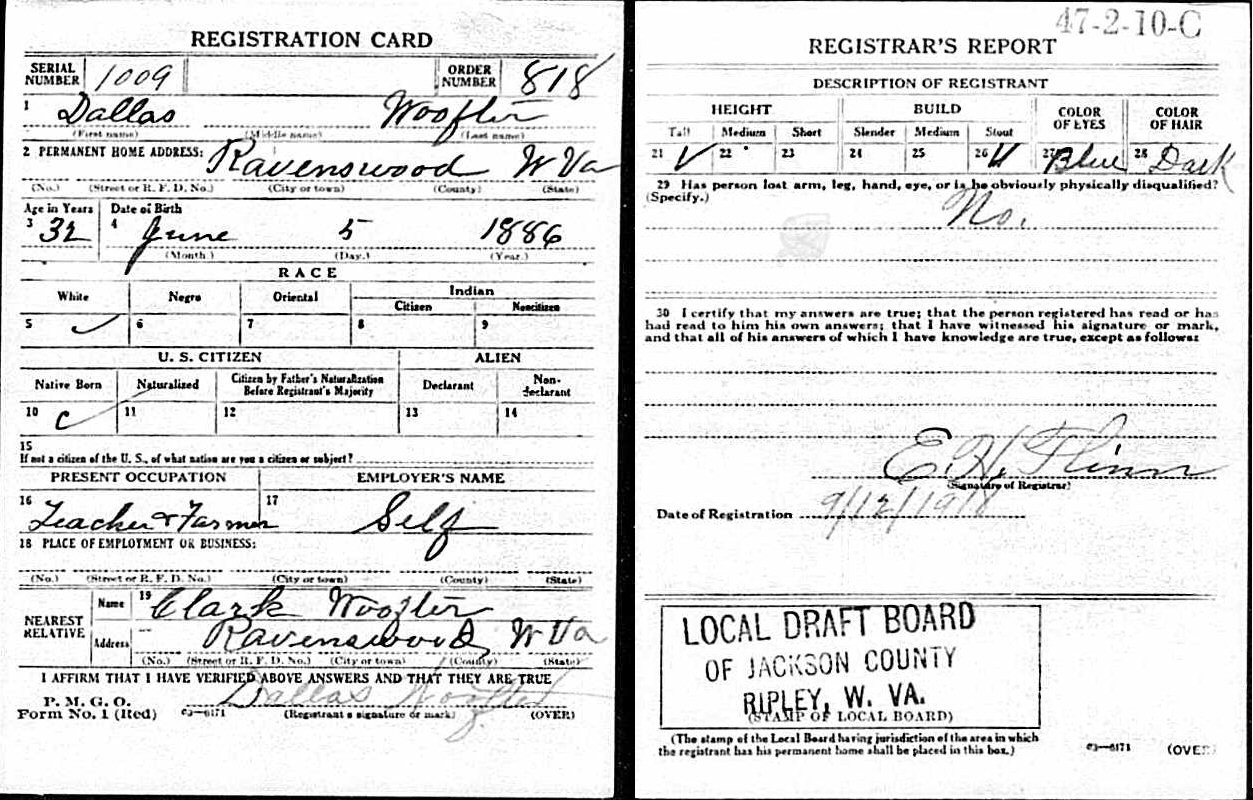 REGISTRATION CARD
SERIAL NUMBER 1009 ORDER NUMBER 818
1 Dallas Woofter
(First name) (Middle name) (Last name)
2 PERMANENT HOME ADDRESS: Ravenswood W Va
(No.) (Street or R. F. D. No.) (City or town) (County) (State)
Age in Years Date of Birth
3 32 4 June 5 1886
(Month.) (Day.) (Year.)
RACE
White Negro Oriental Indian
Citizen Noncitizen
5 6 7 8 9
U. S. CITIZEN ALIEN
Native Born Naturalized Citizen by Father's Naturalization Before Registrant's Majority Declarant Non-declarant
10 11 12 13 14
15
If not a citizen of the U. S., of what nation are you a citizen or subject?
PRESENT OCCUPATION EMPLOYER'S NAME
16 Teacher & Farmer 17 Self
18 PLACE OF EMPLOYMENT OR BUSINESS:
(No.) (Street or R. F. D. No.) (City or town) (County) (State)
NEAREST RELATIVE Name 19 Clark Woofter
Address Ravenswood, W Va
(No.) (Street or R. F. D. No.) (City or town) (County) (State)
I AFFIRM THAT I HAVE VERIFIED ABOVE ANSWERS AND THAT THEY ARE TRUE
P. M. G. O.
Form No. 1 (Red) 03—6171 Dallas Woofter
(Registrant's signature or mark) (OVER)
47-2-10-C
REGISTRAR'S REPORT
DESCRIPTION OF REGISTRANT
HEIGHT BUILD COLOR OF EYES COLOR OF HAIR
Tall Medium Short Slender Medium Stout
21 22 23 24 25 26 27 Blue 28 Dark
29 Has person lost arm, leg, hand, eye, or is he obviously physically disqualified?
(Specify.) No.
30 I certify that my answers are true; that the person registered has read or has
had read to him his own answers; that I have witnessed his signature or mark,
and that all of his answers of which I have knowledge are true, except as follows:
E. H. Flinn
(Signature of Registrar)
Date of Registration 9/12/1918
LOCAL DRAFT BOARD
OF JACKSON COUNTY
RIPLEY, W. VA.
(STAMP OF LOCAL BOARD)
(The stamp of the Local Board having jurisdiction of the area in which
the registrant has his permanent home shall be placed in this box.)
03—6171 (OVER)